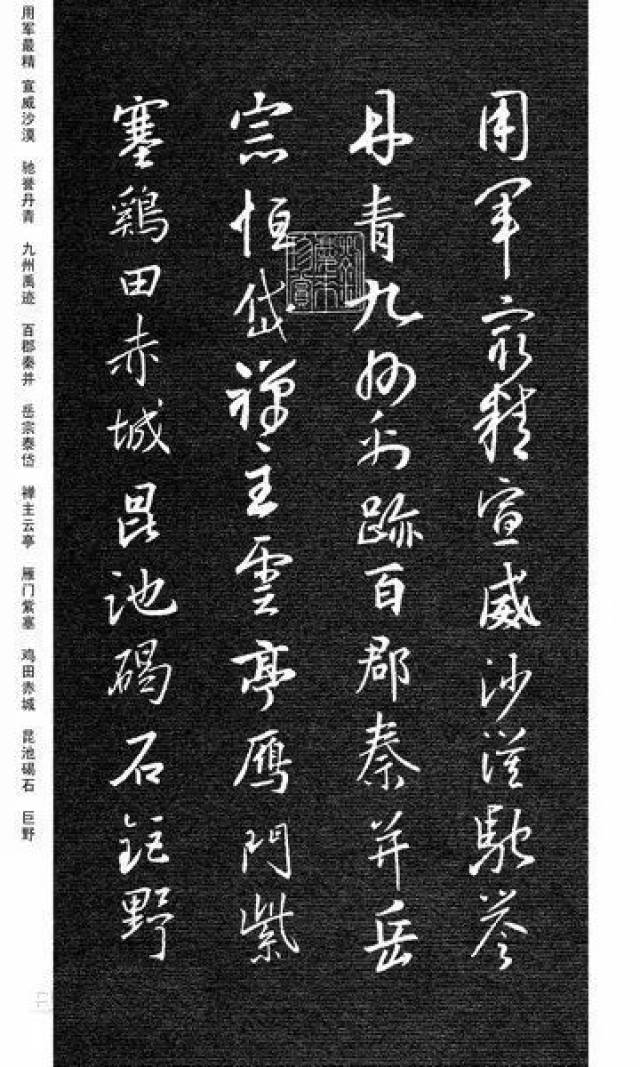 用軍最精宣威沙漠馳誉
丹青九州禹跡百郡秦并岳
宗恒岱禪主雲亭鴈門紫
塞鷄田赤城昆池碣石鉅野
用军最精 宣威沙漠 驰誉丹青 九州禹迹 百郡秦并 岳宗泰岱 禅主云亭 雁门紫塞 鸡田赤城 昆池碣石 巨野